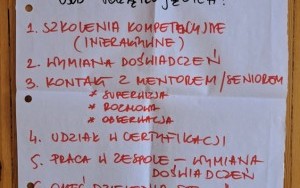 1. SZKOLENIA KOMPETENCYJNE
(INTERAKTYWNE)
2. WYMIANA DOŚWIADCZEŃ
3. KONTAKT Z MENTOREM/SENIOREM
* SUPERWIZJA
* ROZMOWA
* OBSERWACJA
4. UDZIAŁ W CERTYFIKACJI
5. PRACA W ZESPOLE – WYMIANA
DOŚWIADCZEŃ